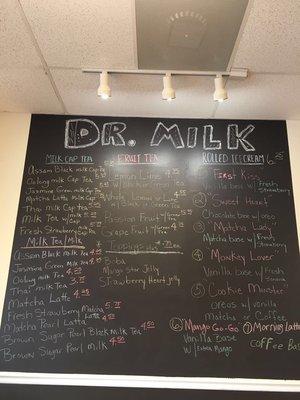 DR. MILK
MILK CAP TEA
Assam Black milk Cap Tea
Oolong milk Cap Tea
Jasmine Green milk Cap Tea
Matcha Latte milk Cap
Thai milk Cap Tea
Milk Tea w/Cap
Fresh Strawberry Cap
Milk Tea/Milk
Assam Black Milk Tea
Jasmine Green Milk Tea
Oolong milk Tea
Thai milk Tea 3.75
Matcha Latte 4.25
Fresh Strawberry Matcha Latte
Matcha Pearl Latte
Brown Sugar Pearl Black Milk Tea
Brown Sugar Pearl milk
FRUIT TEA
Lemon Lime
w/ Black or Green
Whole Lemon
Passion Fruit w/ Green
Grape Fruit w/ Green
Toppings
Boba
Mango Star Jelly
Strawberry Heart Jelly
ROLLED ICECREAM
① First Kiss
Vanilla base w/ Fresh Strawberry
② Sweet Heart
Chocolate base w/ oreo
③ Matcha Lady
Matcha base w/ Fresh Strawberry
④ Monkey Lover
Vanilla base w/ Fresh
⑤ Cookie Monster
Oreos w/ vanilla
Matcha or Coffee
⑥ Mango Go-Go
Vanilla Base
w/ Extra Mango
⑦ Morning Latte
Coffee Bas